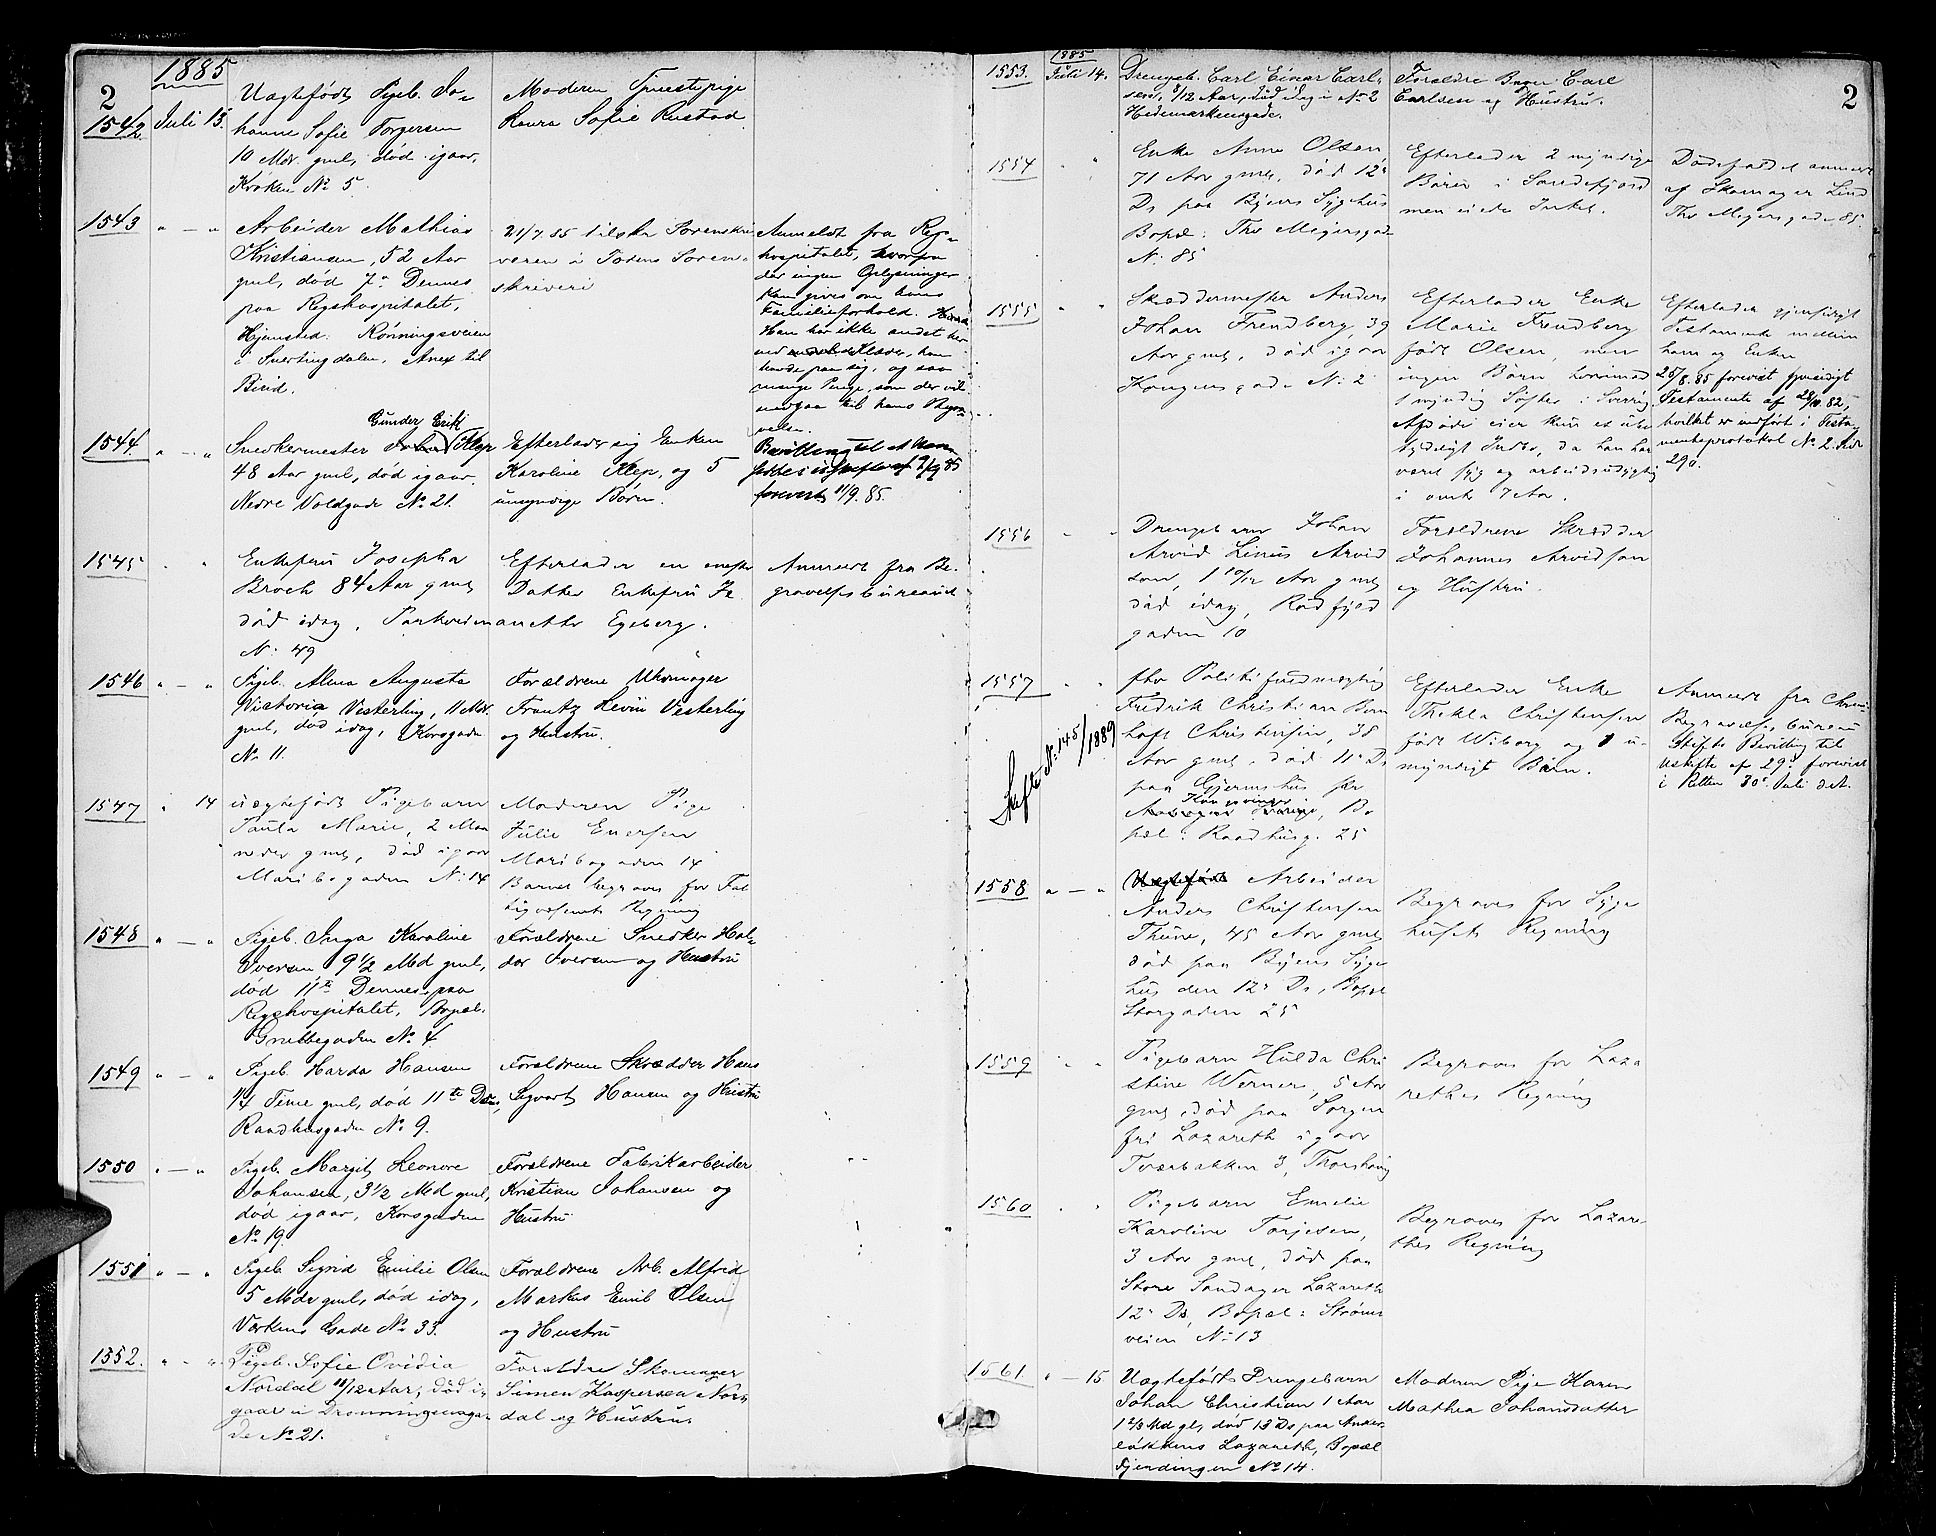 2
1885
1542 Juli 13. Uægtefødt Pigeb. Jo-
hanne Sofie Torgersen
10 Mdr. gml, død igaar,
Kroken No 5.
Moderen Tjenestepige
Laura Sofie Rustad
1543 " — " Arbeider Mathias
Kristiansen, 52 Aar
gml, død 7de Dennes
paa Rigshospitalet,
Hjemsted: Rønningsveien
i Snertingdalen, Anex til
Birid.
21/7 85 tilskr Sorenskri
veren i Totens Soren-
skriveri
Anmeldt fra Rigs-
hospitalet, hvorfra
der ingen Oplysninger
kan gives om hans
Familieforhold.
Han har ikke andet her
end Klæder, han
havde paa sig, og saa
mange Penge, som der vil
medgaa til hans Begra-
velse.
1544 " — " Gunder Erik
Snedkermester Klep
48 Aar gml, død igaar
Nedre Voldgade No 21.
Efterlader sig Enken
Karoline Klep, og 5
umyndige Børn.
Bevilling til at hen-
sidde i uskiftet af 9/9 85
forevist 11/9. 85.
1545 " " Enkefru Josepha
Broch 84 Aar gml
død idag, Parkveien
No 49
Efterlader en eneste
Datter Enkefru Je
anette Egeberg.
Anmeldt fra Be-
gravelsesbureauet
1546 " — " Pigeb. Alma Augusta
Victoria Vesterling, 11 Mdr.
gml, død idag, Korsgade
No 11.
Forældrene Uhrmager
Frantz Levin Vesterling
og Hustru.
1547 " 14 uægtefødt Pigebarn
Paula Marie, 2 Maa
neder gml, død igaar
Maribogaden No 14
Moderen Pige
Julie Enersen
Maribogaden 14
Barnet begraves for Fat
tigvæsenets Regning
1548 " — " Pigeb. Inga Karoline
Iversen 9 1/2 Md gml,
død 11te Dennes paa
Rigshospitalet, Bopæl.
Grubbegaden No 4
Forældrene Snedker Hal-
dor Iversen og Hustru
1549 " — " Pigeb. Harda Hansen
1/4 Time gml, død 11te Ds.,
Raadhusgaden No 9.
Forældrene Skrædder Hans
Sigvart Hansen og Hustru
1550 " — " Pigeb. Margit Leonore
Johansen, 3 1/2 Md gml,
død igaar, Korsgaden
No 19.
Forældrene Fabrikarbeider
Kristian Johansen og
Hustru
1551 " — " Pigeb. Sigrid Emilie Olsen
5 Mdr gml, død idag,
Verkens Gade No 33.
Forældrene Arb. Alfred
Markus Emil Olsen
og Hustru
1552. " - " Pigeb. Sofie Ovidia
Nordal 11/12 Aar, død i-
gaar i Dronningensga-
de No 21.
Forældre Skomager
Simen Kaspersen Nor-
dal og Hustru.
2
1885
1553. Juli 14. Drengeb. Carl Einar Carl-
sen, 8/12 Aar, død idag i No 2
Hedemarkensgade.
Forældre Bager Carl
Carlsen og Hustru.
1554 " " Enke Anne Olsen
71 Aar gml, død 12te
Ds paa Byens Sygehus
Bopæl: Ths Meyersgade
No 85
Efterlader 2 myndige
Børn i Sandefjord
men eiede Intet.
Dødsfaldet anmeldt
af Skomager Lind
Ths Meyersgade 85.
1555 " Skræddermester Anders
Johan Trendberg, 39
Aar gml, død igaar
Kongensgade No 2
Efterlader Enke
Marie Trendberg
født Olsen, men
ingen Børn hvorimod
1 myndig Søster i Sverig
Afdøde eier kun et ube
tydeligt Indbo, da han har
været syg og arbeidsudygtig
i omtr 7 Aar.
Efterlader gjensidigt
Testamente mellem
ham og Enken
25/8. 85 forevist gjensidigt
Testamente af 82,
hvilket er indført i Testa-
menteprotokol No 2. Side
290.
1556 " " Drengebarn Johan
Arvid Linus Arvid
son, 1 10/12 Aar gml
død idag, Rødfyld
gaden 10
Forældrene Skrædder
Johannes Arvidson
og Hustru.
1557 " " fhv Politifuldmægtig
Fredrik Christian Bom
hoff Christensen, 38
Aar gml, død 11te Ds
paa Gjernshus pr
Kongsvinger, Bo
pæl: Raadhusg. 25
Skifte No 145/1889
Efterlader Enke
Thekla Christensen
født Wiborg og 1 u-
myndigt Barn.
Anmeldt fra Chra
Begravelsesbureau
Stifts Bevilling til
Uskifte af 29de forevist
i Retten 30te Juli d.A.
1558 " — " Uægtefødt Arbeider
Anders Christensen
Thune, 45 Aar gml
død paa Byens Syge
hus den 12te Ds, Bopæl
Storgaden 25
Begraves for Syge
husets Regning
1559 " " Pigebarn Hulda Chri
stine Werner, 5 Aar
gml, død paa Sorgen
fri Lazareth igaar
Tværbakken 3, Thorshaug
Begraves for Laza
rethes Regning
1560 " " Pigebarn Emelie
Karoline Torjesen,
3 Aar gml, død paa
Store Sandager Lazareth
12te Ds, Bopæl: Strøms
veien No 13
Begraves for Lazare-
thes Regning
1561. " — 15 Uægtefødt Drengebarn
Johan Christian 1 Aar
1 2/3 Md gl, død 13 Ds paa Anker-
løkkens Lazareth, Bopæl
Fjerdingen No 14.
Moderen Pige Haren
Mathea Johansdatter